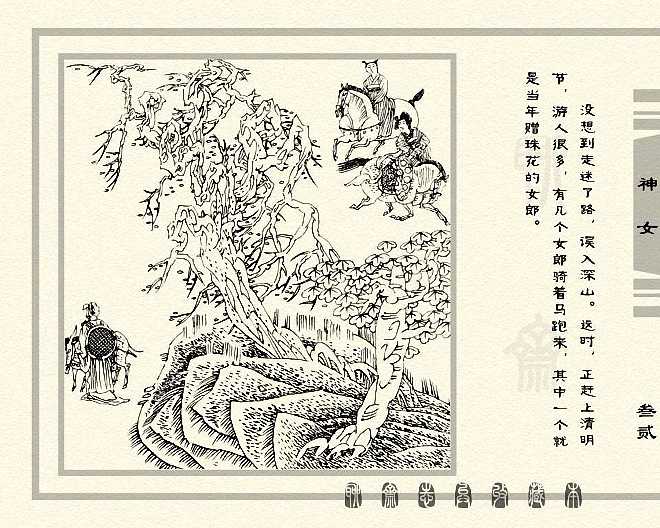 神女
叁贰
没想到走迷了路，误入深山。这时，正赶上清明
节，游人很多，有几个女郎骑着马跑来，其中一个就
是当年赠珠花的女郎。